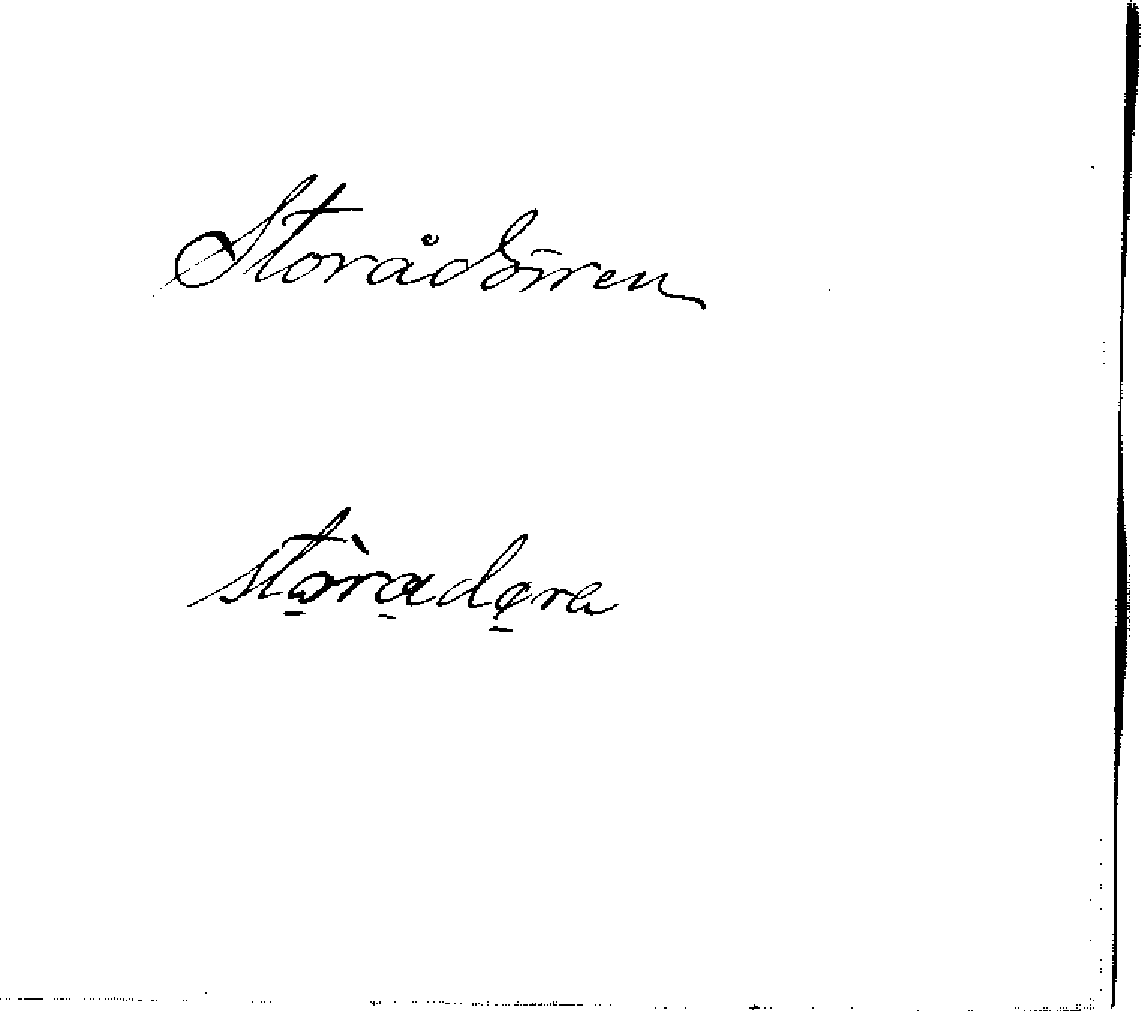 Storådörren
stò̱ra̱dø̱ra